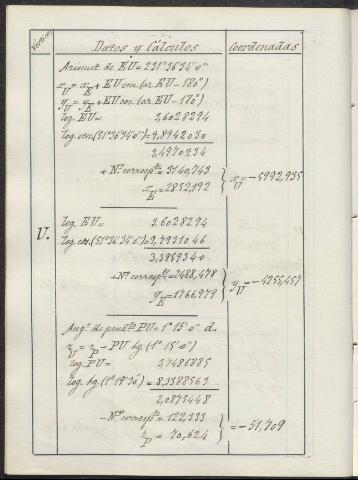 Vértices
Datos y Cálculos
Coordenadas
Azimut de EU = 231°36'34"0"
x_U = x_E + EU sen. (az. EU - 180°)
y_U = y_E + EU cos. (az. EU - 180°)
log. EU = 3,6028294
log. sen. (51°36'34"0") = 9,8942030
3,4970234
+ N.º corresp.te = 3140,743
x_E = 2852,192
x_U = -5992,935
U.
log. EU = 3,6028294
log. cos. (51°36'34"0") = 9,7931046
3,3959340
+ N.º corresp.te = 2488,478
y_E = 1766,979
y_U = -4255,457
Ang.º de pend.te PU = 1°15'0" d.
z_U = z_P - PU tg. (1°15'0")
log. PU = 3,7486885
log. tg. (1°15'0") = 8,3388563
2,0875448
- N.º corresp.te = 122,333
z_P = 70,624
= -51,709